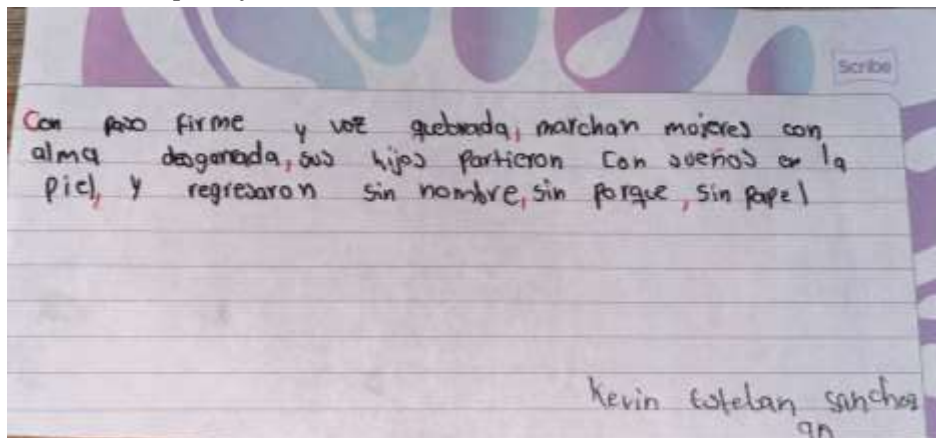 Scribe
Con paso firme y voz quebrada, marchan mojeres con
alma desgarrada, sus hijos partieron con sueños en la
piel, y regresaron sin nombre, sin porque, sin papel
Kevin Esteban Sanchez